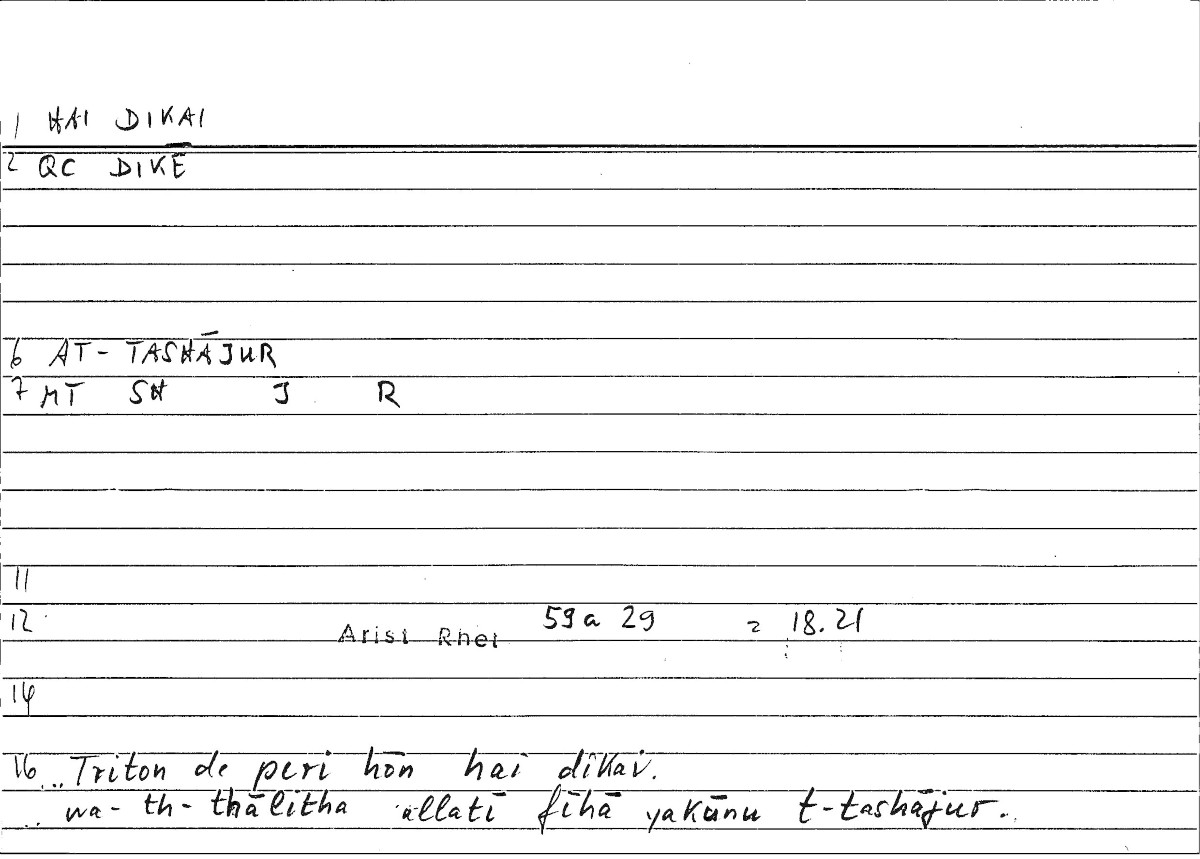 1 HAI DIKAI
2 QC DIKĒ
6 AT-TASHĀJUR
7 MT SH J R
11
12 Arist Rhet 59a 29 = 18.21
14
16 ..Triton de peri hōn hai dikai.
.. wa-th-thālitha allatī fīhā yakūnu t-tashājur..